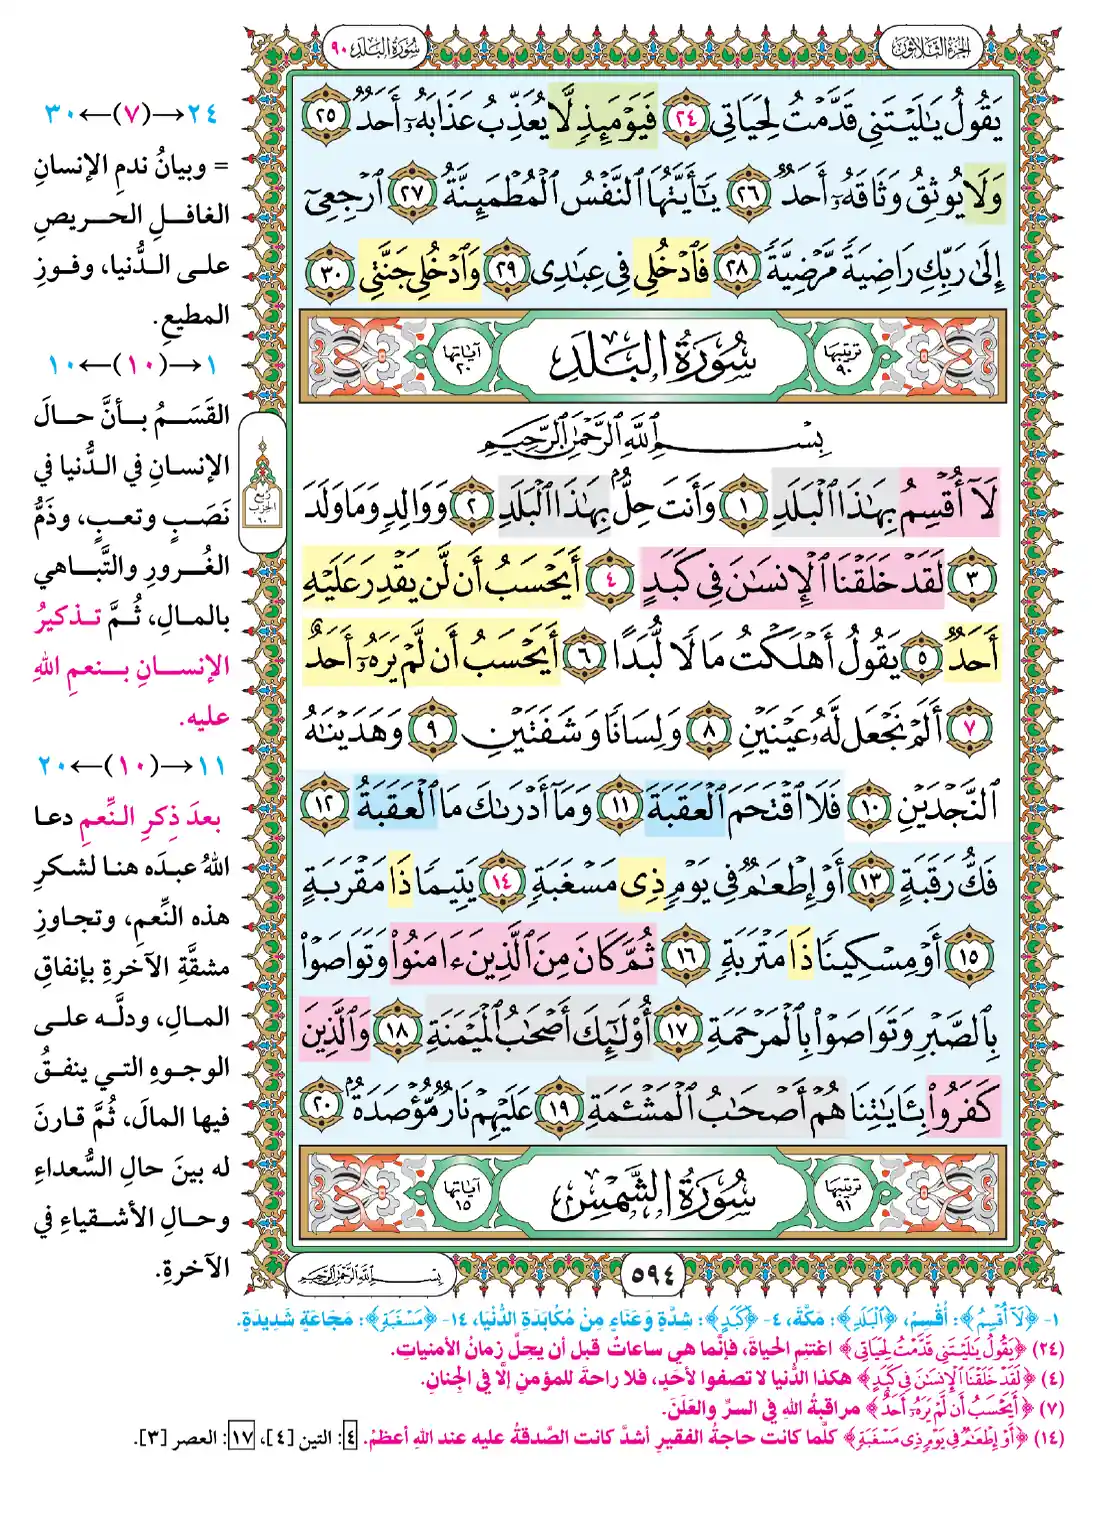 الجزء الثلاثون
سورة البلد ٩٠
يَقُولُ يَٰلَيْتَنِى قَدَّمْتُ لِحَيَاتِى ٢٤ فَيَوْمَئِذٍ لَّا يُعَذِّبُ عَذَابَهُۥٓ أَحَدٌ ٢٥
وَلَا يُوثِقُ وَثَاقَهُۥٓ أَحَدٌ ٢٦ يَٰٓأَيَّتُهَا ٱلنَّفْسُ ٱلْمُطْمَئِنَّةُ ٢٧ ٱرْجِعِىٓ
إِلَىٰ رَبِّكِ رَاضِيَةً مَّرْضِيَّةً ٢٨ فَٱدْخُلِى فِى عِبَٰدِى ٢٩ وَٱدْخُلِى جَنَّتِى ٣٠
ترتيبها ٩٠ سُورَةُ البَلَدِ آياتها ٢٠
بِسْمِ ٱللَّهِ ٱلرَّحْمَٰنِ ٱلرَّحِيمِ
لَآ أُقْسِمُ بِهَٰذَا ٱلْبَلَدِ ١ وَأَنتَ حِلٌّۢ بِهَٰذَا ٱلْبَلَدِ ٢ وَوَالِدٍ وَمَا وَلَدَ
٣ لَقَدْ خَلَقْنَا ٱلْإِنسَٰنَ فِى كَبَدٍ ٤ أَيَحْسَبُ أَن لَّن يَقْدِرَ عَلَيْهِ
أَحَدٌ ٥ يَقُولُ أَهْلَكْتُ مَالًا لُّبَدًا ٦ أَيَحْسَبُ أَن لَّمْ يَرَهُۥٓ أَحَدٌ
٧ أَلَمْ نَجْعَل لَّهُۥ عَيْنَيْنِ ٨ وَلِسَانًا وَشَفَتَيْنِ ٩ وَهَدَيْنَٰهُ
ٱلنَّجْدَيْنِ ١٠ فَلَا ٱقْتَحَمَ ٱلْعَقَبَةَ ١١ وَمَآ أَدْرَىٰكَ مَا ٱلْعَقَبَةُ ١٢
فَكُّ رَقَبَةٍ ١٣ أَوْ إِطْعَٰمٌ فِى يَوْمٍ ذِى مَسْغَبَةٍ ١٤ يَتِيمًا ذَا مَقْرَبَةٍ
١٥ أَوْ مِسْكِينًا ذَا مَتْرَبَةٍ ١٦ ثُمَّ كَانَ مِنَ ٱلَّذِينَ ءَامَنُوا۟ وَتَوَاصَوْا۟
بِٱلصَّبْرِ وَتَوَاصَوْا۟ بِٱلْمَرْحَمَةِ ١٧ أُو۟لَٰٓئِكَ أَصْحَٰبُ ٱلْمَيْمَنَةِ ١٨ وَٱلَّذِينَ
كَفَرُوا۟ بِـَٔايَٰتِنَا هُمْ أَصْحَٰبُ ٱلْمَشْـَٔمَةِ ١٩ عَلَيْهِمْ نَارٌ مُّؤْصَدَةٌۢ ٢٠
ترتيبها ٩١ سُورَةُ الشَّمْسِ آياتها ١٥
٥٩٤
بِسْمِ ٱللَّهِ ٱلرَّحْمَٰنِ ٱلرَّحِيمِ
٢٤→(٧)←٣٠
= وبيانُ ندمِ الإنسانِ
الغافلِ الحريصِ
على الدُّنيا، وفوزِ
المطيعِ.
١→(١٠)←١٠
القَسَمُ بأنَّ حالَ
الإنسانِ في الدُّنيا في
نَصَبٍ وتعبٍ، وذَمُّ
الغُرورِ والتَّباهي
بالمالِ، ثُمَّ تذكيرُ
الإنسانِ بنعمِ اللهِ
عليه.
١١→(١٠)←٢٠
بعدَ ذِكرِ النِّعمِ دعا
اللهُ عبدَه هنا لشكرِ
هذه النِّعمِ، وتجاوزِ
مشقَّةِ الآخرةِ بإنفاقِ
المالِ، ودلَّه على
الوجوهِ التي ينفقُ
فيها المالَ، ثُمَّ قارنَ
له بينَ حالِ السُّعداءِ
وحالِ الأشقياءِ في
الآخرةِ.
ربع الحزب ٦٠
١- ﴿لَآ أُقْسِمُ﴾: أُقْسِمُ، ﴿ٱلْبَلَدِ﴾: مَكَّةَ، ٤- ﴿كَبَدٍ﴾: شِدَّةٍ وَعَنَاءٍ مِنْ مُكَابَدَةِ الدُّنْيَا، ١٤- ﴿مَسْغَبَةٍ﴾: مَجَاعَةٍ شَدِيدَةٍ.
(٢٤) ﴿يَقُولُ يَٰلَيْتَنِى قَدَّمْتُ لِحَيَاتِى﴾ اغتنِم الحياةَ، فإنَّما هي ساعاتٌ قبل أن يحِلَّ زمانُ الأمنياتِ.
(٤) ﴿لَقَدْ خَلَقْنَا ٱلْإِنسَٰنَ فِى كَبَدٍ﴾ هكذا الدُّنيا لا تصفوا لأحَدٍ، فلا راحةَ للمؤمنِ إلَّا في الجنانِ.
(٧) ﴿أَيَحْسَبُ أَن لَّمْ يَرَهُۥٓ أَحَدٌ﴾ مراقبةُ اللهِ في السرِّ والعَلَنِ.
(١٤) ﴿أَوْ إِطْعَٰمٌ فِى يَوْمٍ ذِى مَسْغَبَةٍ﴾ كلَّما كانت حاجةُ الفقيرِ أشدَّ كانت الصَّدقةُ عليه عند اللهِ أعظمُ. ٤: التين [٤]، ١٧: العصر [٣].